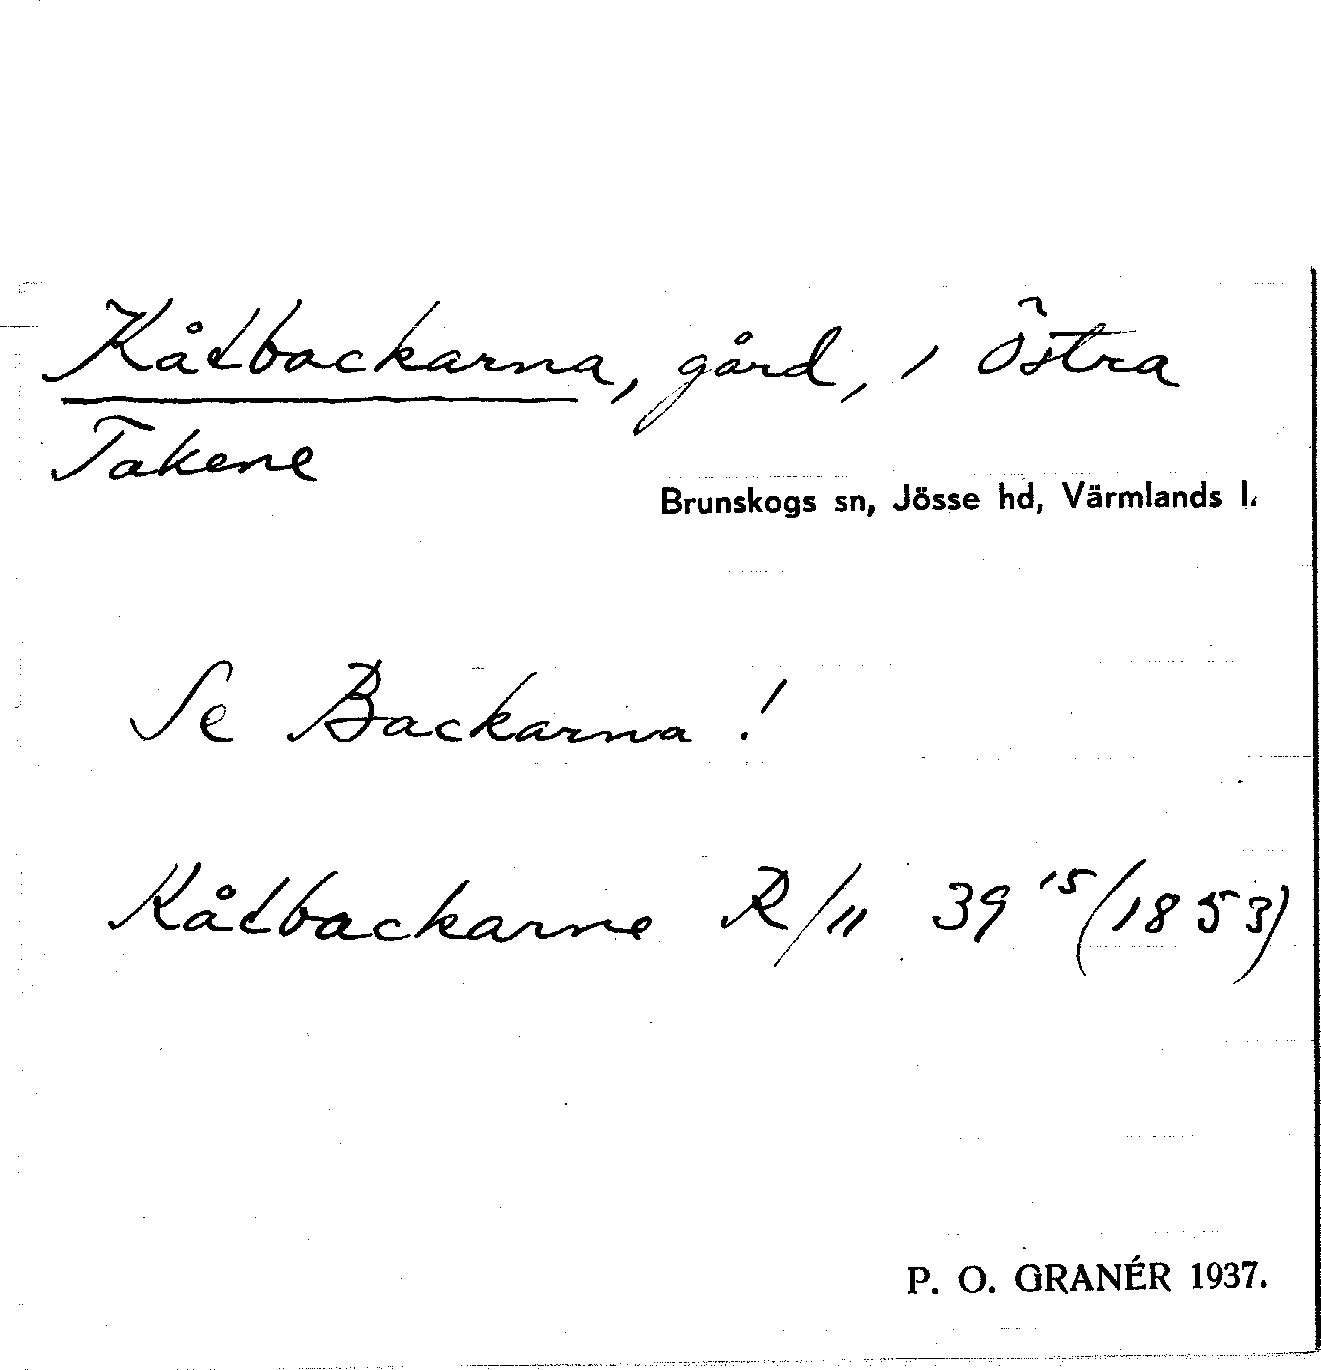 Kåtbackarna, gård, i Östra
Takene
Brunskogs sn, Jösse hd, Värmlands l.
Se Backarna!
Kåtbackarne R/11 39 15 (1853)
P. O. GRANÉR 1937.